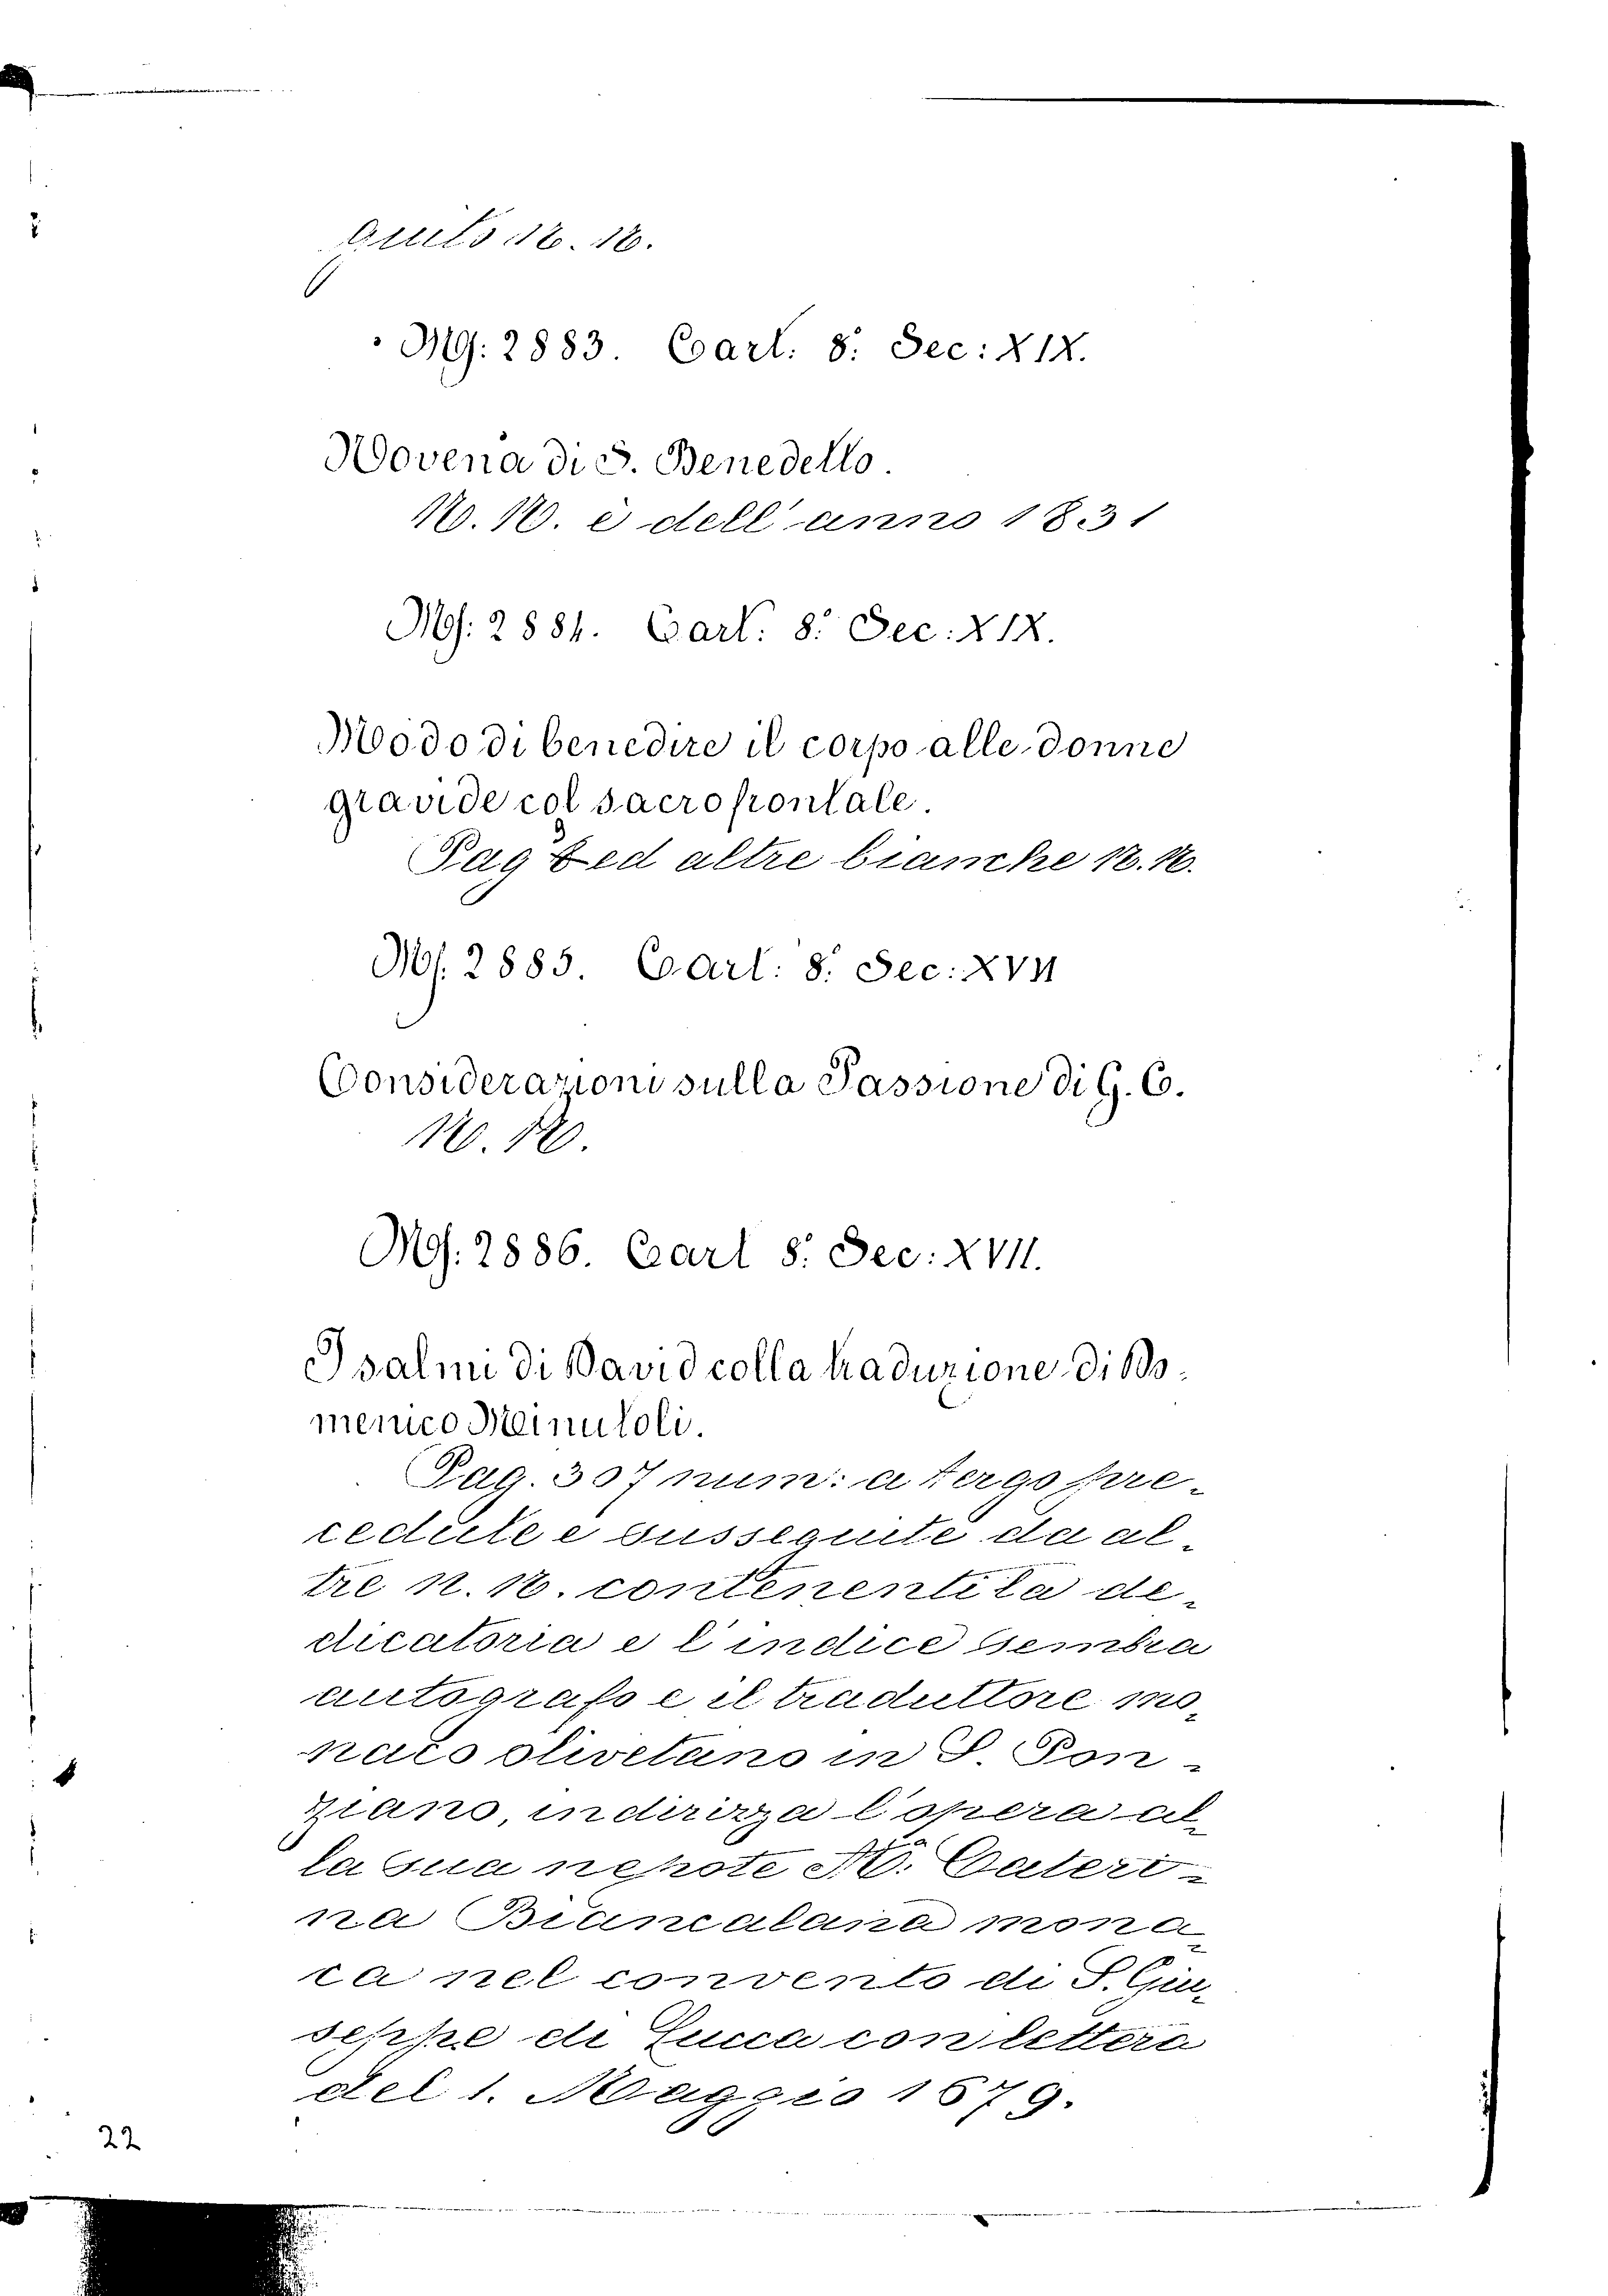 guits N. N.
Ms: 2883. Cart: 8: Sec: XIX.
Novena di S. Benedetto.
N. N. è dell'anno 1831
Ms: 2884. Cart: 8: Sec: XIX.
Modo di benedire il corpo alle donne
gravide col sacro frontale.
Pag ed altre bianche N. N.
Ms. 2885. Cart: 8: Sec: XVII
Considerazioni sulla Passione di G. C.
N. N.
Ms: 2886. Cart 8: Sec: XVII.
Psalmi di David colla traduzione di Do-
menico Meinutoli.
Pag. 307 num: a tergo pre-
cedute e susseguite da al-
tre n. N. contenenti la de-
dicatoria e l'indice Sembra
autografo e il traduttore mo-
naco olivetano in S. Pon-
ziano, indirizza l'opera al-
la sua nepote Mª: Cateri-
na Biancalana mona-
ca nel convento di S. Giu-
seppe di Lucca con lettera
del 1. Maggio 1679.
22